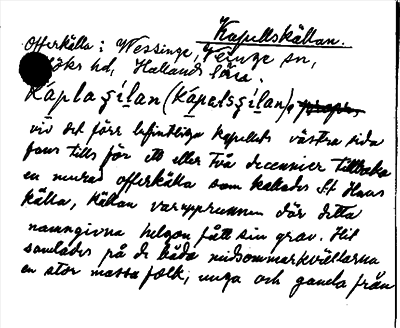 Kapellskällan.
Offerkälla i Wessinge, Veinge sn,
Höks hd, Hallands län.
Kápla χílan (Kápalsχílan),
vid det förr befintliga kapellets västra sida
fans tills för ett eller två decennier tillbaka
en murad offerkälla som kallades St Hans
källa, källan var upprunnen där detta
namngivna helgon fått sin grav. Hit
samlades på de båda midsommarkvällarna
en stor massa folk, unga och gamla från